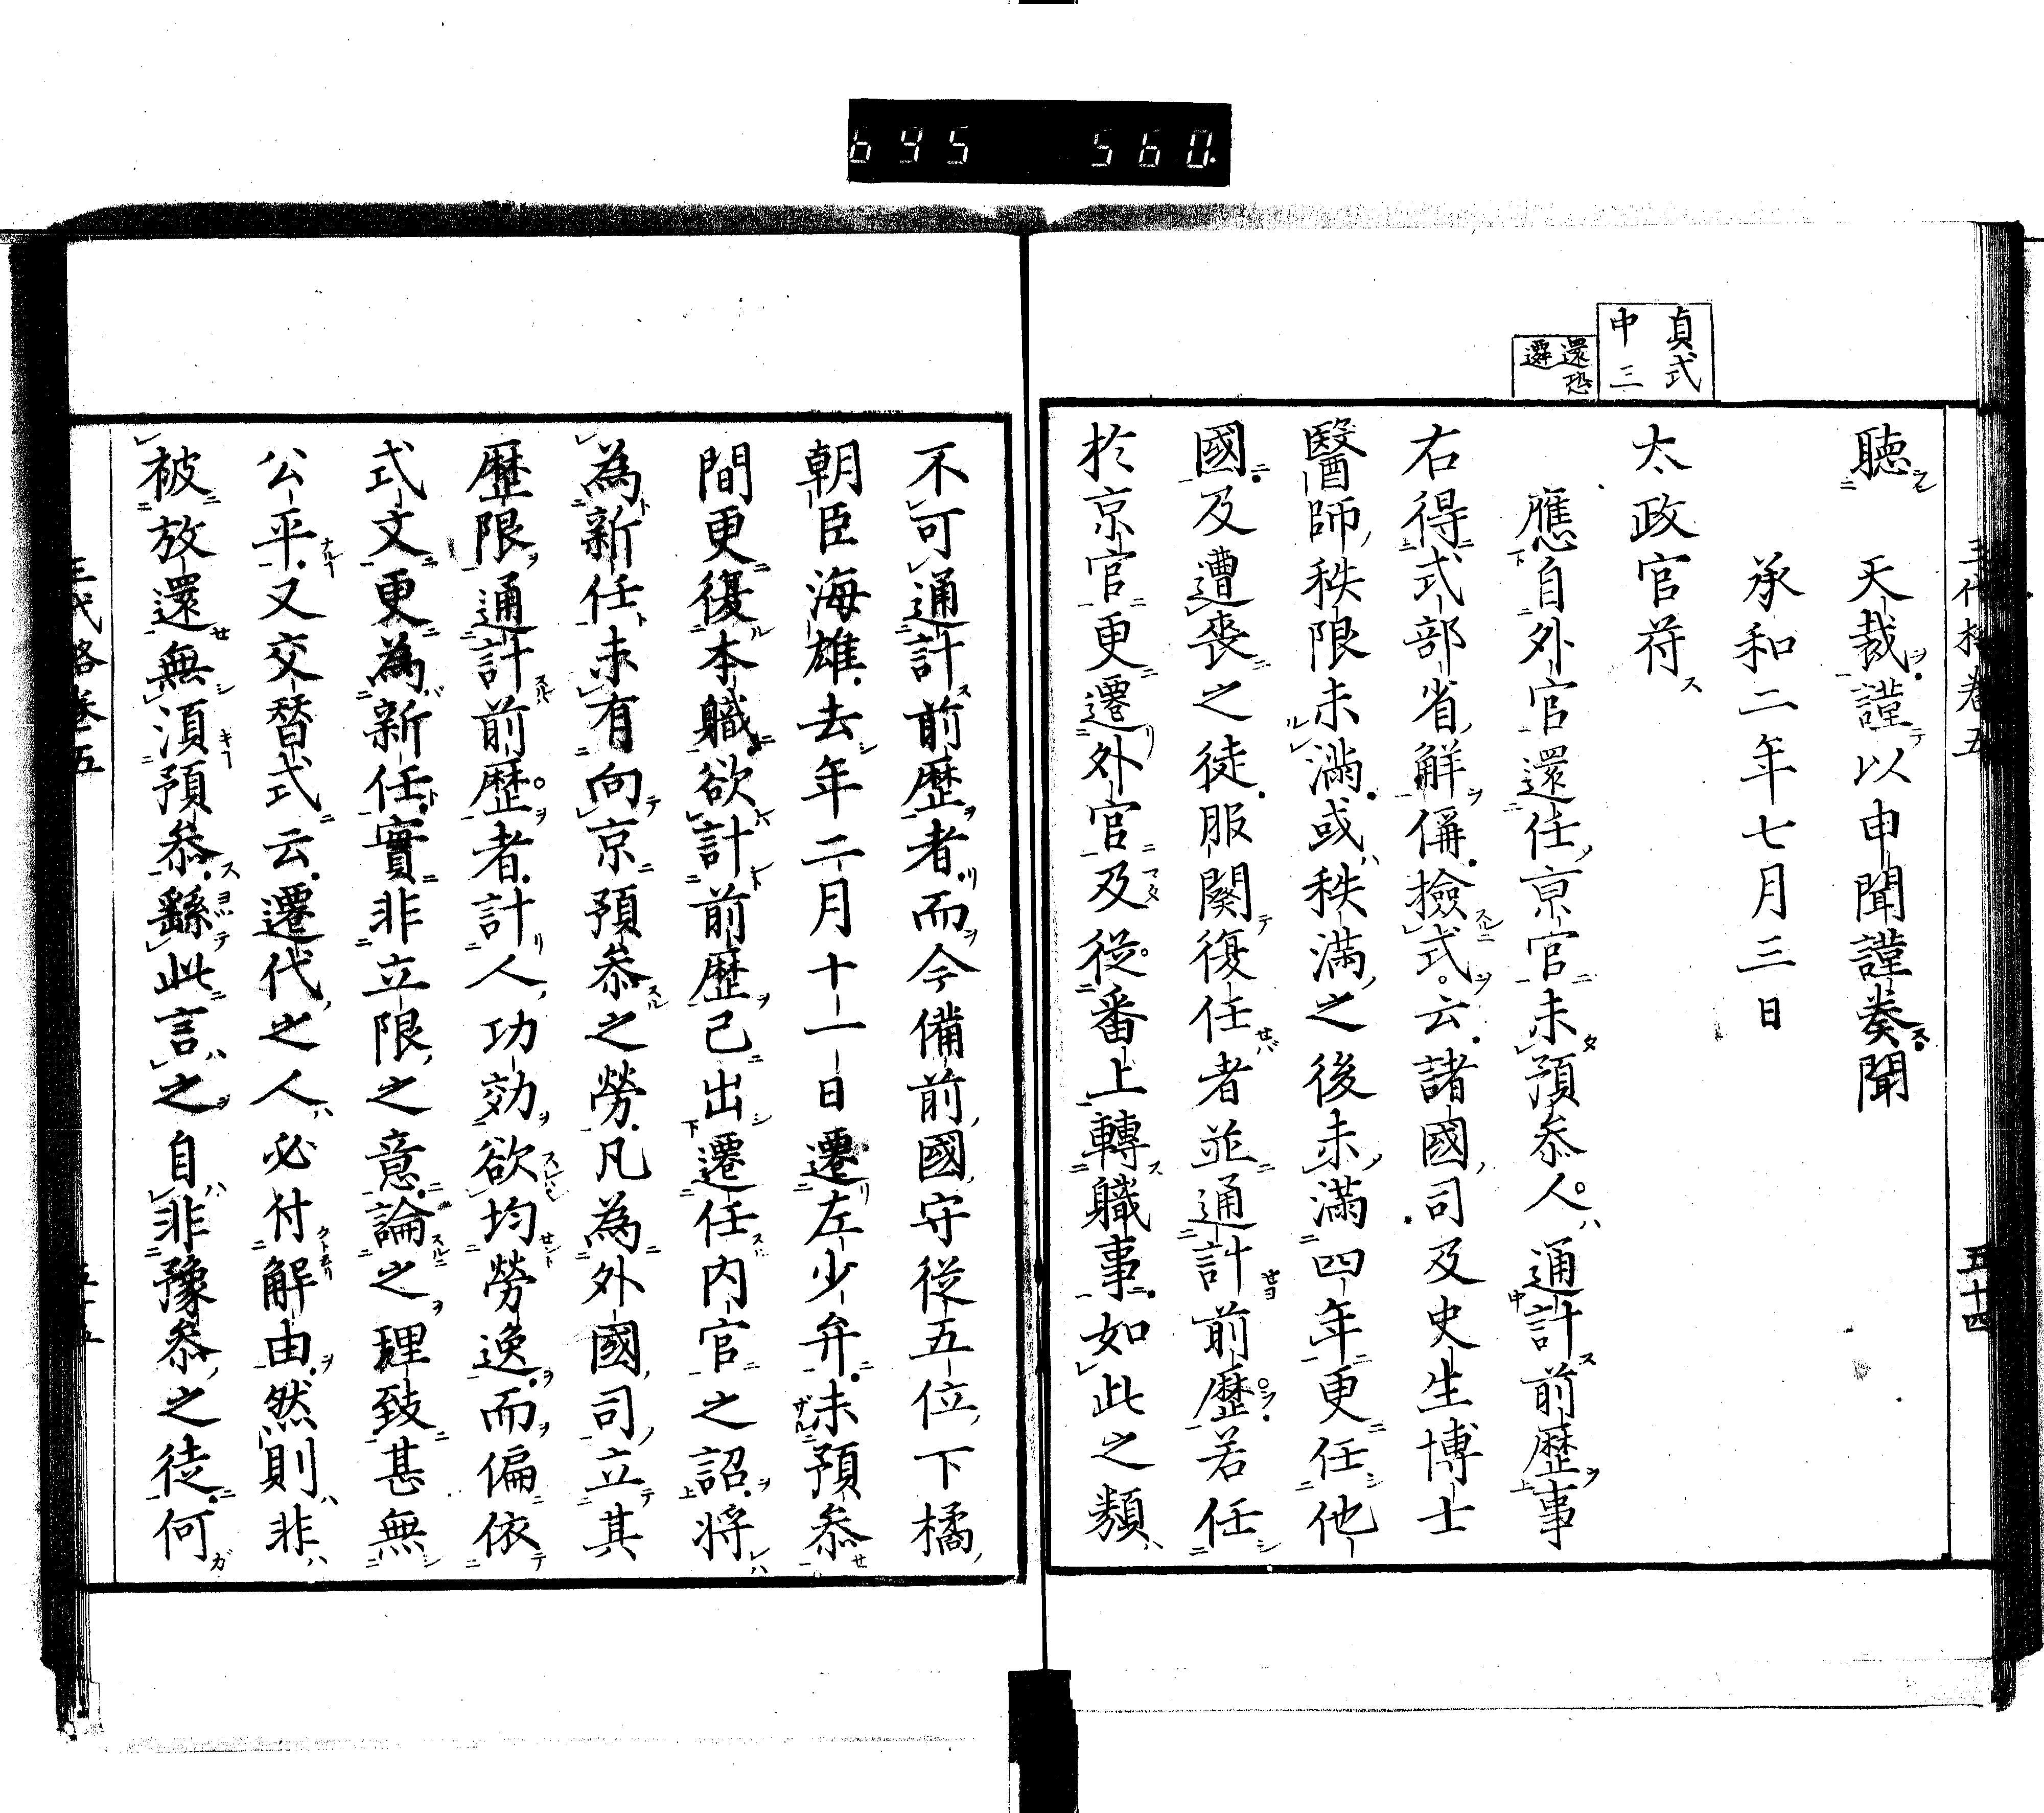 695 560.
貞式
申三
還恐
遷
三代格卷五 五十四
聴 天裁謹以申聞謹奏聞
承和二年七月三日
太政官符
應自外官還任京官未預参人通計前歴事
右得式部省解偁撿式云諸國司及史生博士
醫師秩限未満或秩満之後未満四年更任他
國及遭喪之徒服闋復任者並通計前歴若任
於京官更遷外官及従番上轉職事如此之類
不可通計前歴者而今備前國守従五位下橘
朝臣海雄去年二月十一日遷左少弁未預参
間更復本職欲計前歴已出遷任内官之詔将
為新任未有向京預参之勞凡為外國司立其
歴限通計前歴者計人功効欲均勞逸而偏依
式文更為新任實非立限之意論之理致甚無
公平又交替式云遷代之人必付解由然則非
被放還無湏預参繇此言之自非豫参之徒何
三代格卷五